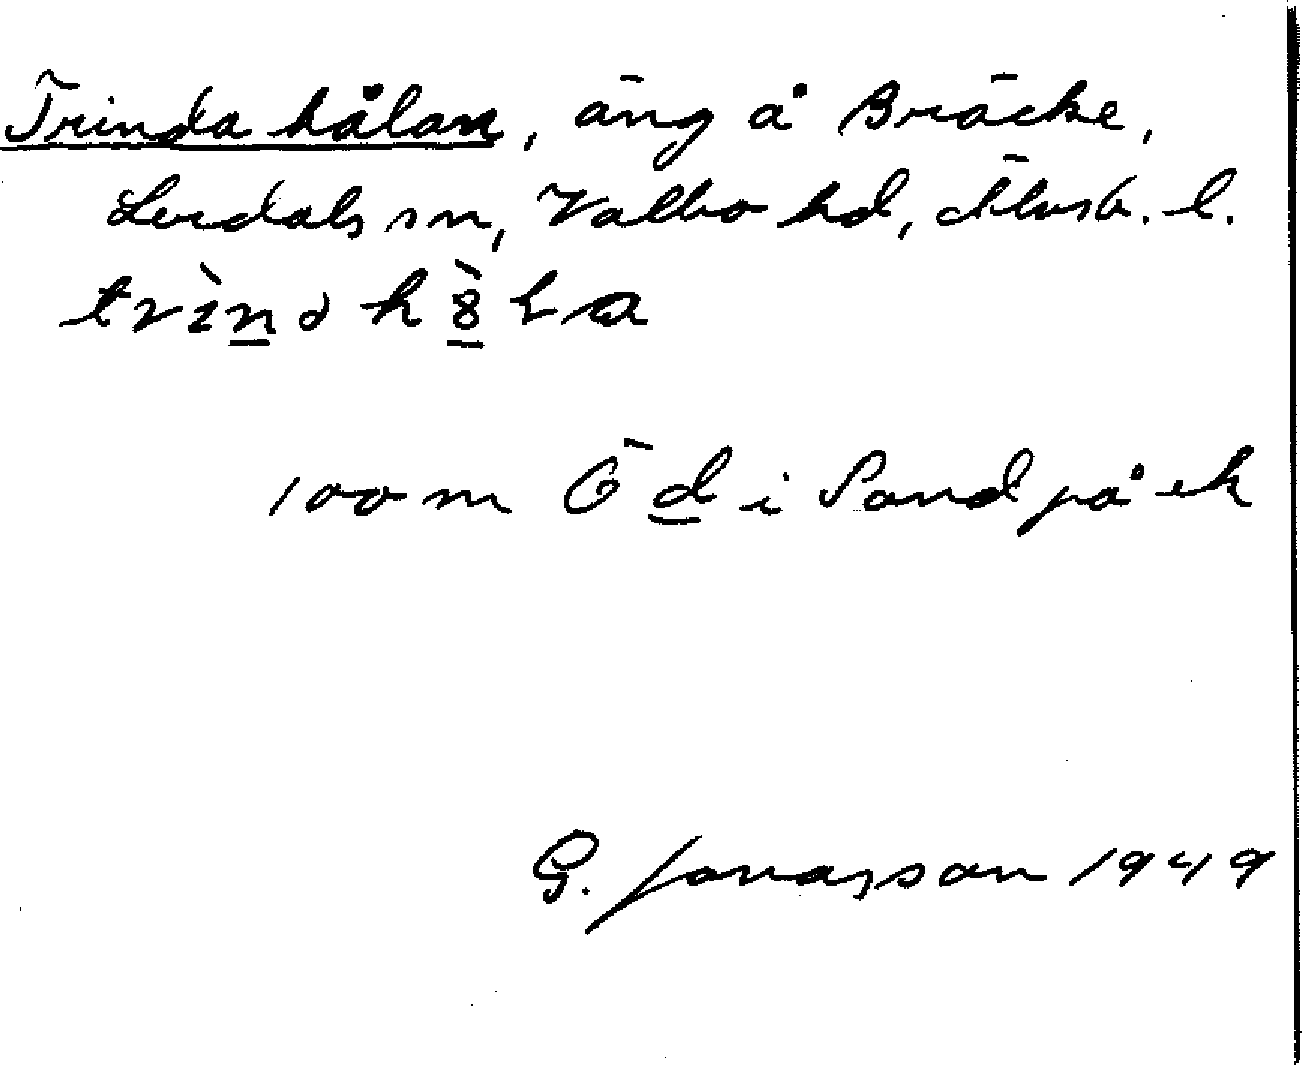 Trinda hålan, äng å Bräcke,
Lerdals sn, Valbo hd, Älvsb. l.
100 m Ö d i Sand på ek
G. Jonasson 1949